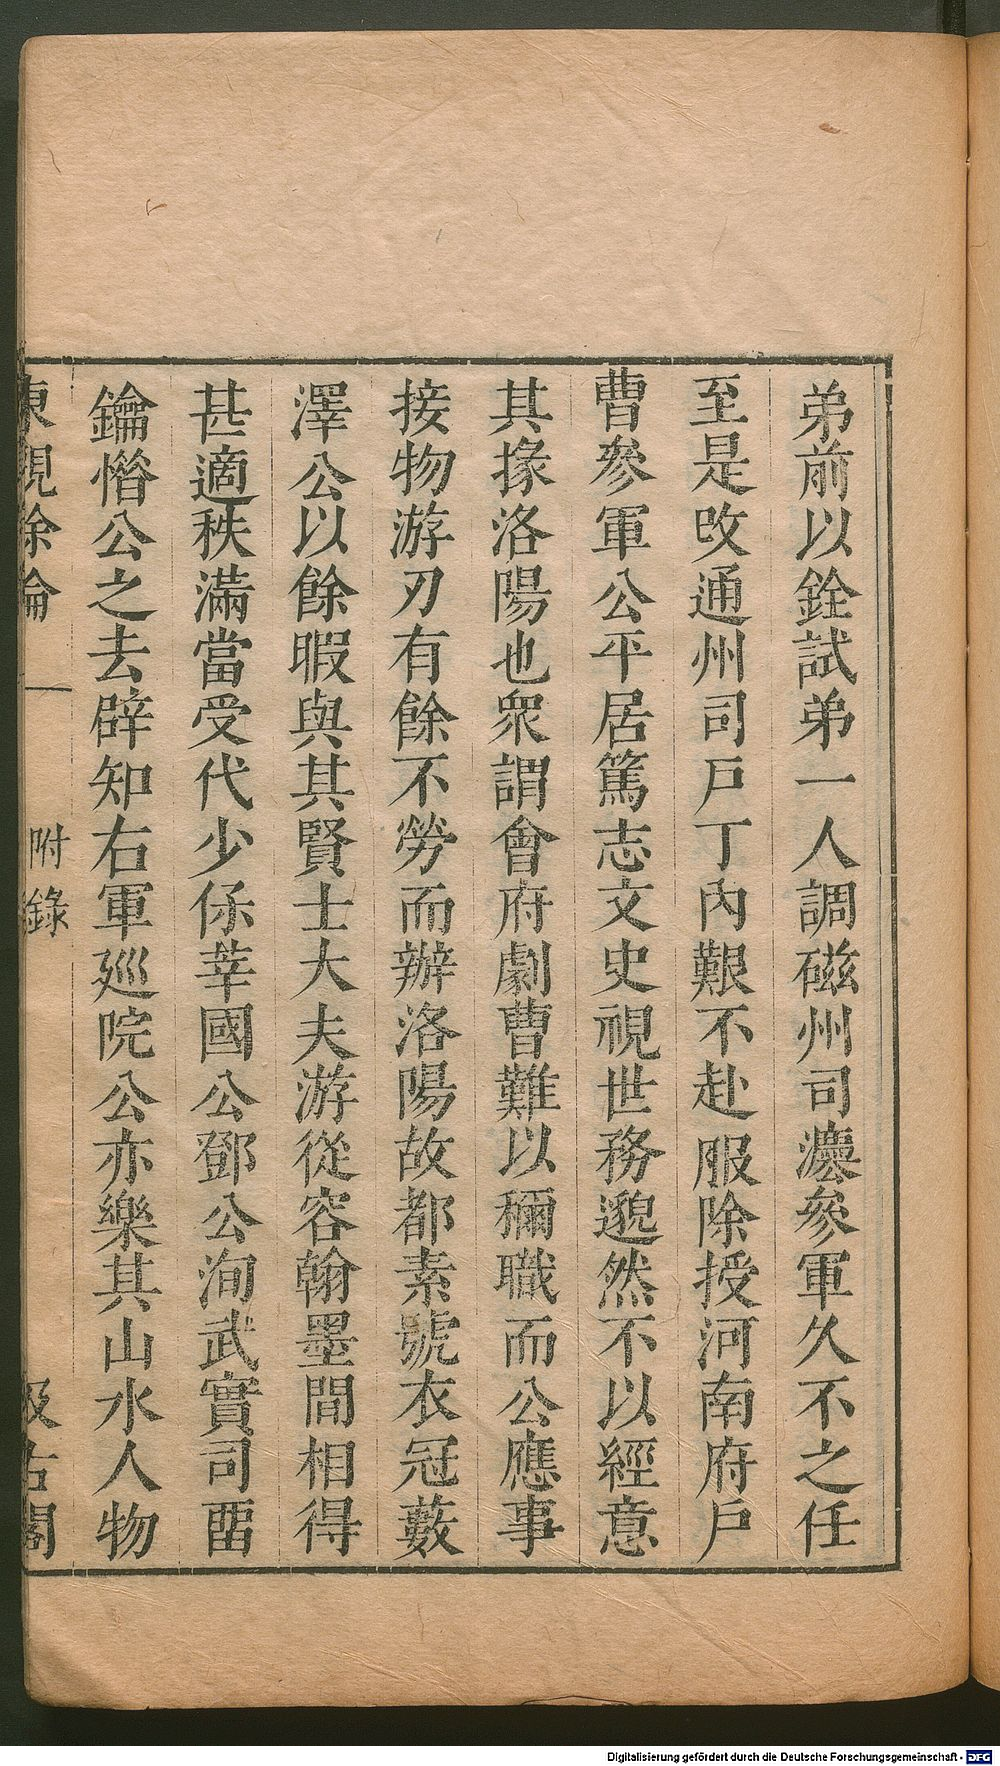 弟前以銓試弟一人調磁州司灋參軍久不之任
至是改通州司戸丁内艱不赴服除授河南府戸
曹參軍公平居篤志文史視世務邈然不以經意
其掾洛陽也衆謂會府劇曹難以稱職而公應事
接物游刃有餘不勞而辦洛陽故都素號衣冠藪
澤公以餘暇與其賢士大夫游從容翰墨間相得
甚適秩滿當受代少保莘國公鄧公洵武實司畱
鑰惜公之去辟知右軍廵院公亦樂其山水人物
東觀餘論 附錄 汲古閣
Digitalisierung gefördert durch die Deutsche Forschungsgemeinschaft - DFG